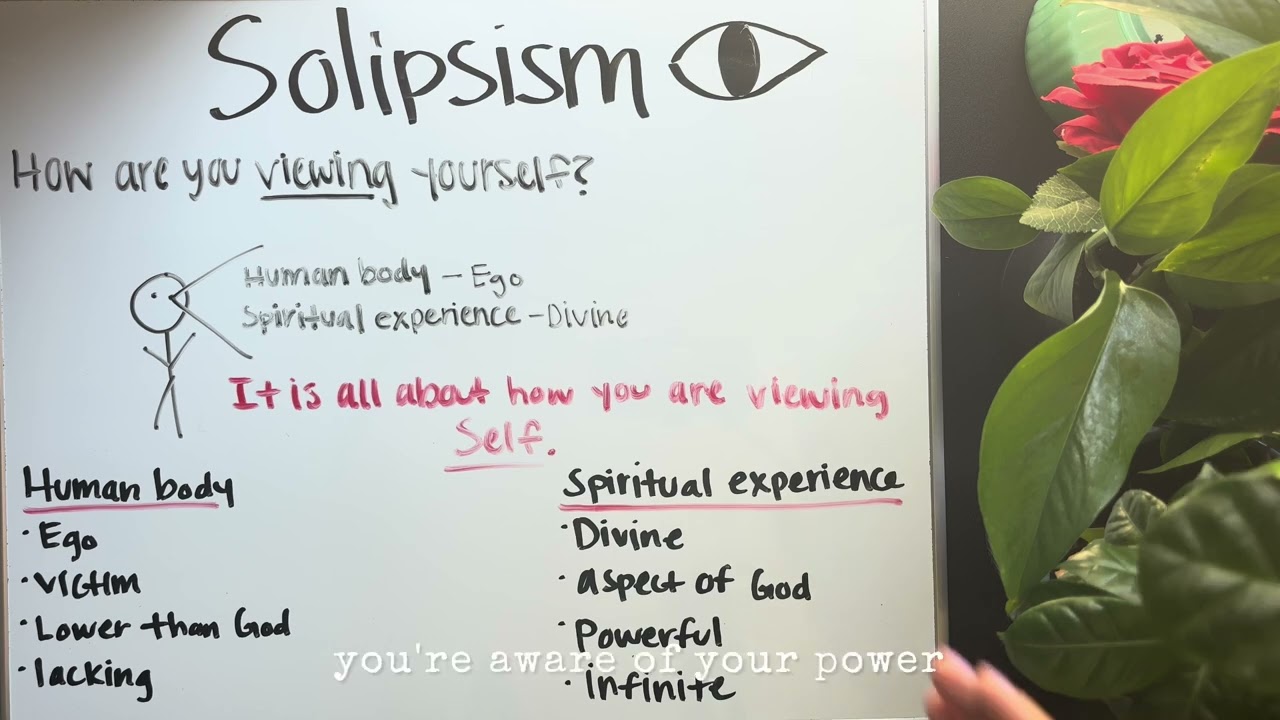 Solipsism
How are you viewing yourself?
Human body - Ego
Spiritual experience - Divine
It is all about how you are viewing
Self.
Human body
· Ego
· Victim
· Lower than God
· lacking
Spiritual experience
· Divine
· aspect of God
· Powerful
· Infinite
you're aware of your power